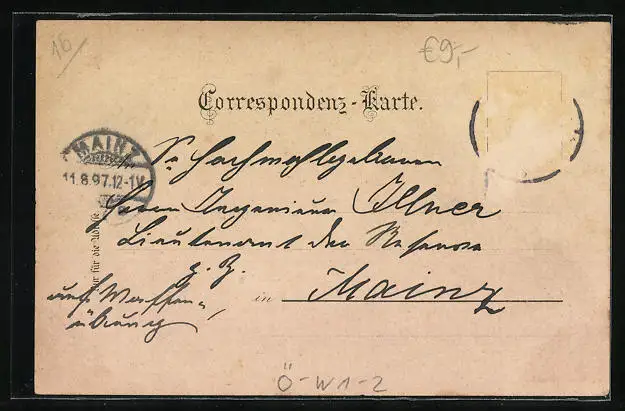 16/
€9,-
Correspondenz-Karte.
MAINZ
11.8.97.12-1V
Sr Hochwohlgeboren
Herrn Ingenieur Illner
Lieutenant der Reserve
z. Z.
auf Waffen-
übung
in Mainz
Nur für die Adresse.
Ö-W1-2